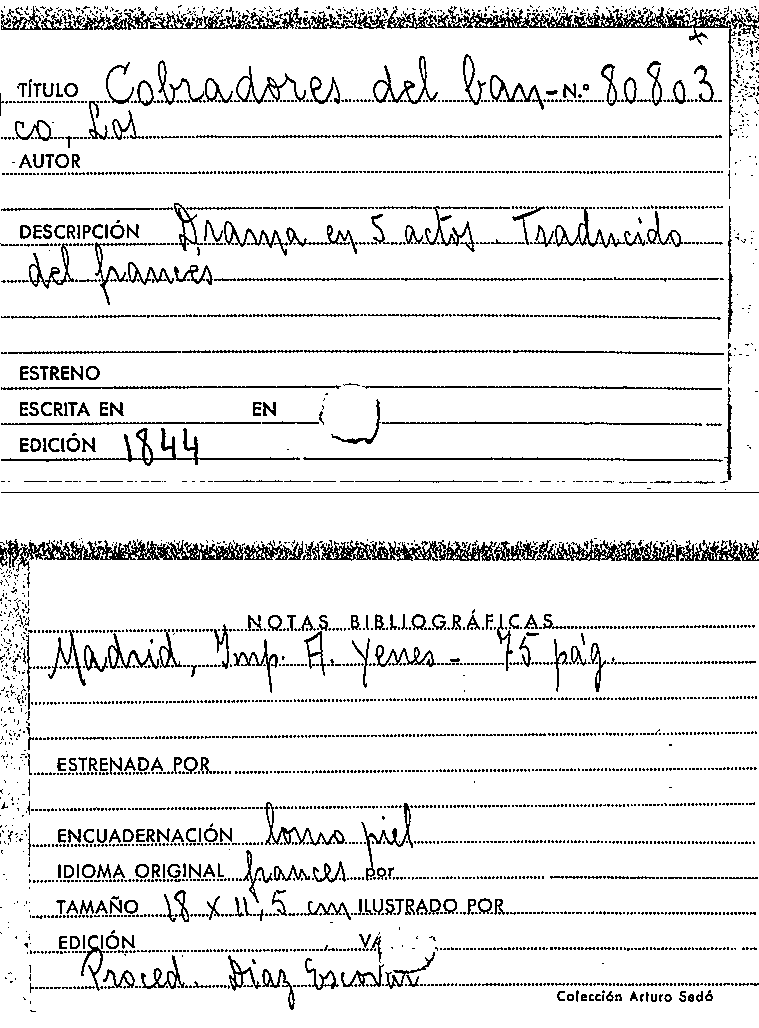 TÍTULO Cobradores del ban- N.º 80803
co, Los
AUTOR
DESCRIPCIÓN Drama en 5 actos. Traducido
del francés
ESTRENO
ESCRITA EN EN
EDICIÓN 1844
NOTAS BIBLIOGRÁFICAS
Madrid, Imp. A. Yenes - 75 pág.
ESTRENADA POR
ENCUADERNACIÓN lomo piel
IDIOMA ORIGINAL frances por
TAMAÑO 18 x 11,5 cm ILUSTRADO POR
EDICIÓN
Proced. Diaz Escovar
Colección Arturo Sedó